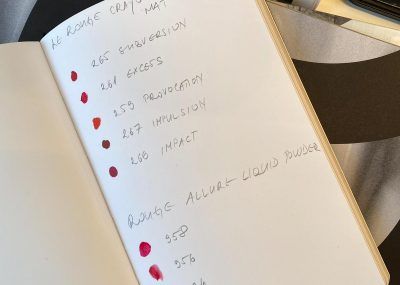 LE ROUGE CRAYON
MAT
265 SUBVERSION
261 EXCESS
259 PROVOCATION
267 IMPULSION
268 IMPACT
ROUGE ALLURE LIQUID POWDER
958
956